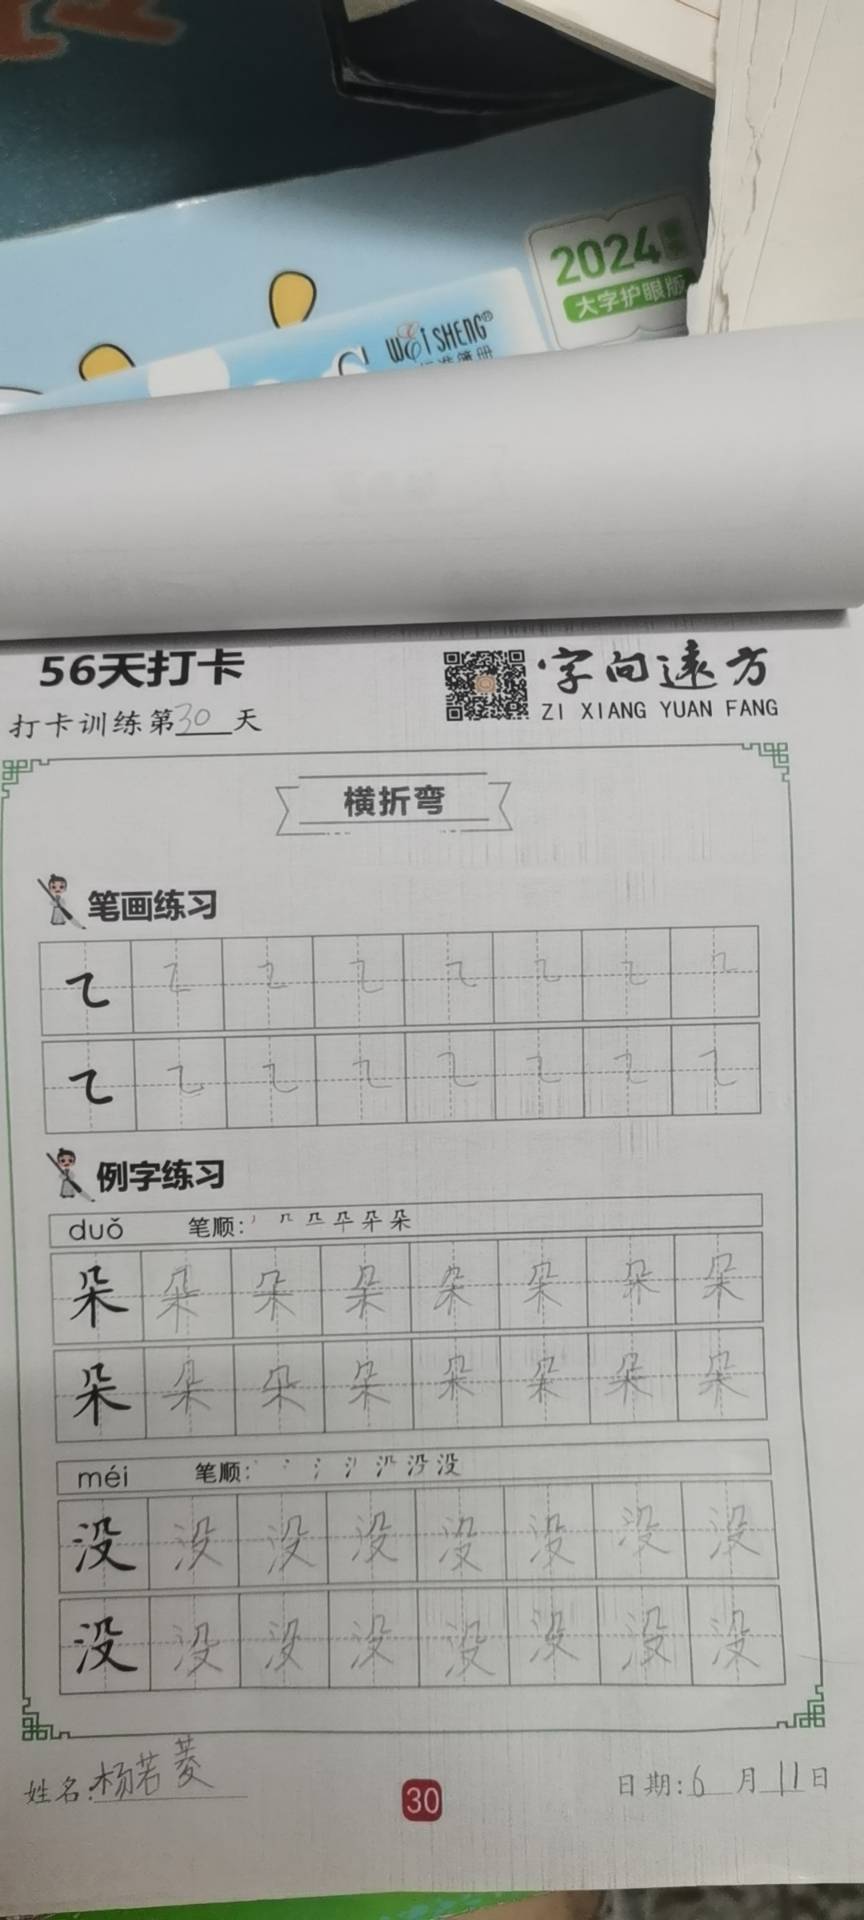 2024
大字护眼版
WEiSHENG®
56天打卡
字向远方
打卡训练第30天
ZI XIANG YUAN FANG
横折弯
笔画练习
㇍ ㇍ ㇍ ㇍ ㇍ ㇍ ㇍ ㇍
㇍ ㇍ ㇍ ㇍ ㇍ ㇍ ㇍ ㇍
例字练习
duǒ 笔顺:
朵 朵 朵 朵 朵 朵 朵 朵
朵 朵 朵 朵 朵 朵 朵 朵
méi 笔顺:
没 没 没 没 没 没 没 没
没 没 没 没 没 没 没 没
姓名:杨若菱
30
日期:6月11日